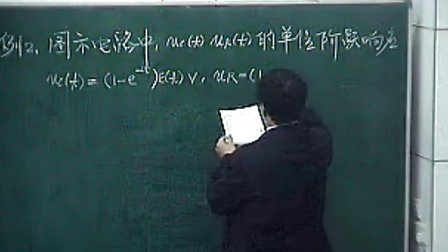 例2、图示电路中，uc(t) uR(t) 的单位阶跃响应
uc(t) = (1-e^{-t})ε(t) V，uR=(1